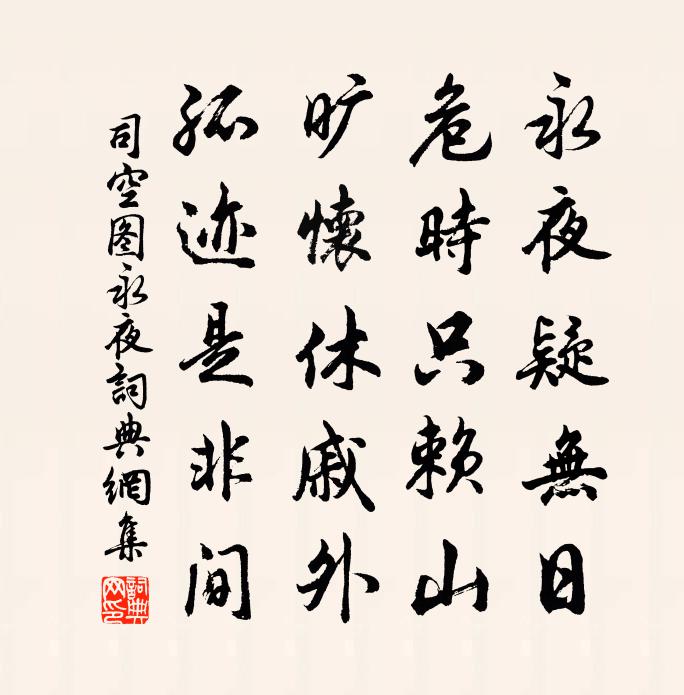 永夜疑無日
危時只賴山
旷懷休戚外
孤迹是非间
司空图永夜詞典網集
詞典网印